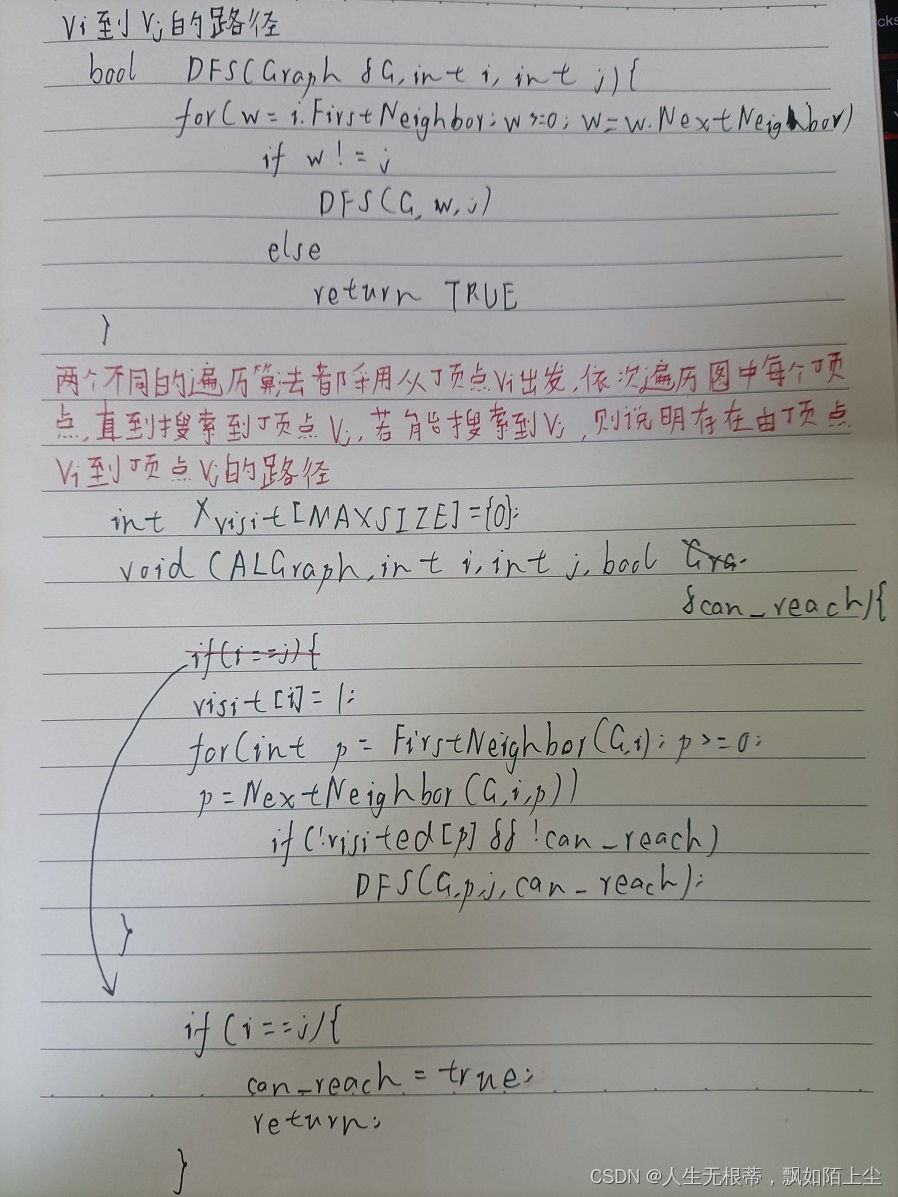 Vi到Vj的路径
bool DFS(Graph &G, int i, int j){
for(w = i.FirstNeighbor; w>=0; w=w.NextNeighbor)
if w != j
DFS(G, w, j)
else
return TRUE
}
两个不同的遍历算法都采用从顶点Vi出发,依次遍历图中每个顶
点,直到搜索到顶点Vj,若能搜索到Vj,则说明存在由顶点
Vi到顶点Vj的路径
int visit[MAXSIZE]={0};
void (ALGraph, int i, int j, bool Gra
&can_reach){
if(i==j){
visit[i]=1;
for(int p = FirstNeighbor(G,i); p>=0;
p=NextNeighbor(G,i,p))
if(!visited[p] && !can_reach)
DFS(G,p,j,can_reach);
}
if(i==j){
can_reach = true;
return;
}
cks
CSDN @人生无根蒂,飘如陌上尘